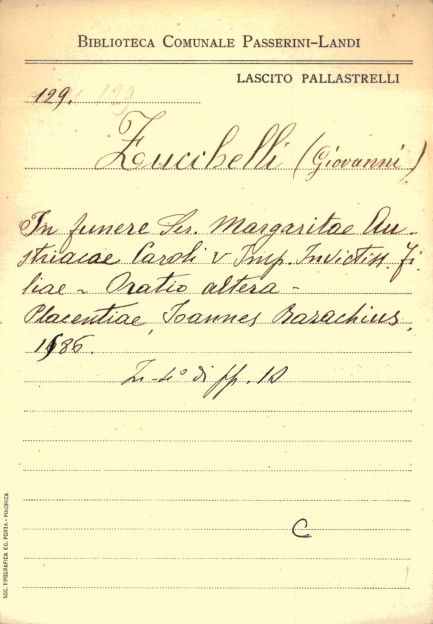 BIBLIOTECA COMUNALE PASSERINI-LANDI
LASCITO PALLASTRELLI
129.
Zucibelli (Giovanni)
In funere Ser. Margaritae Au-
striacae Caroli V Imp. Invictiss. fi-
liae - Oratio altera -
Placentiae, Joannes Barachius,
1586.
In-4° di pp. 10
C
SOC. TIPOGRAFICA ED. PORTA - PIACENZA